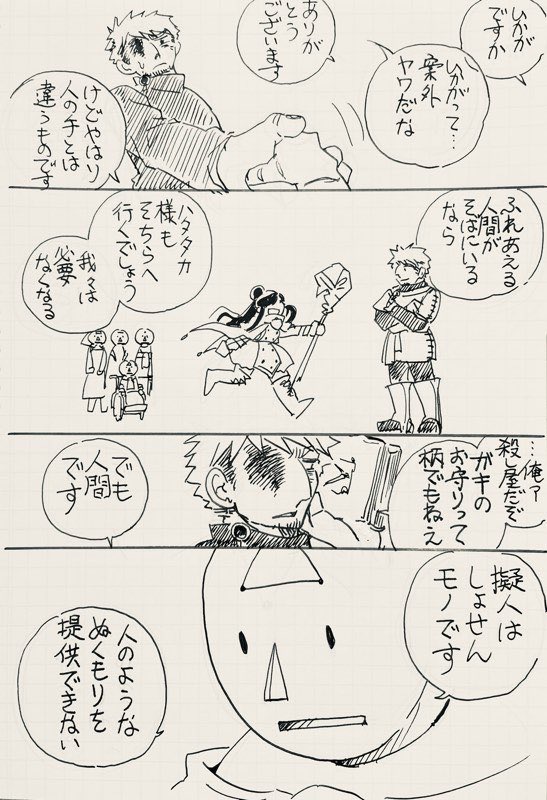 いかが
ですか
いかがって…
案外
ヤワだな
ありが
とう
ございます
けどやはり
人の手とは
違うものです
ふれあえる
人間が
そばにいる
なら
ハタタカ
様も
そちらへ
行くでしょう
我々は
必要
なくなる
…俺ァ
殺し屋だぞ
ガキの
お守りって
柄でもねえ
でも
人間
です
擬人は
しょせん
モノです
人のような
ぬくもりを
提供できない